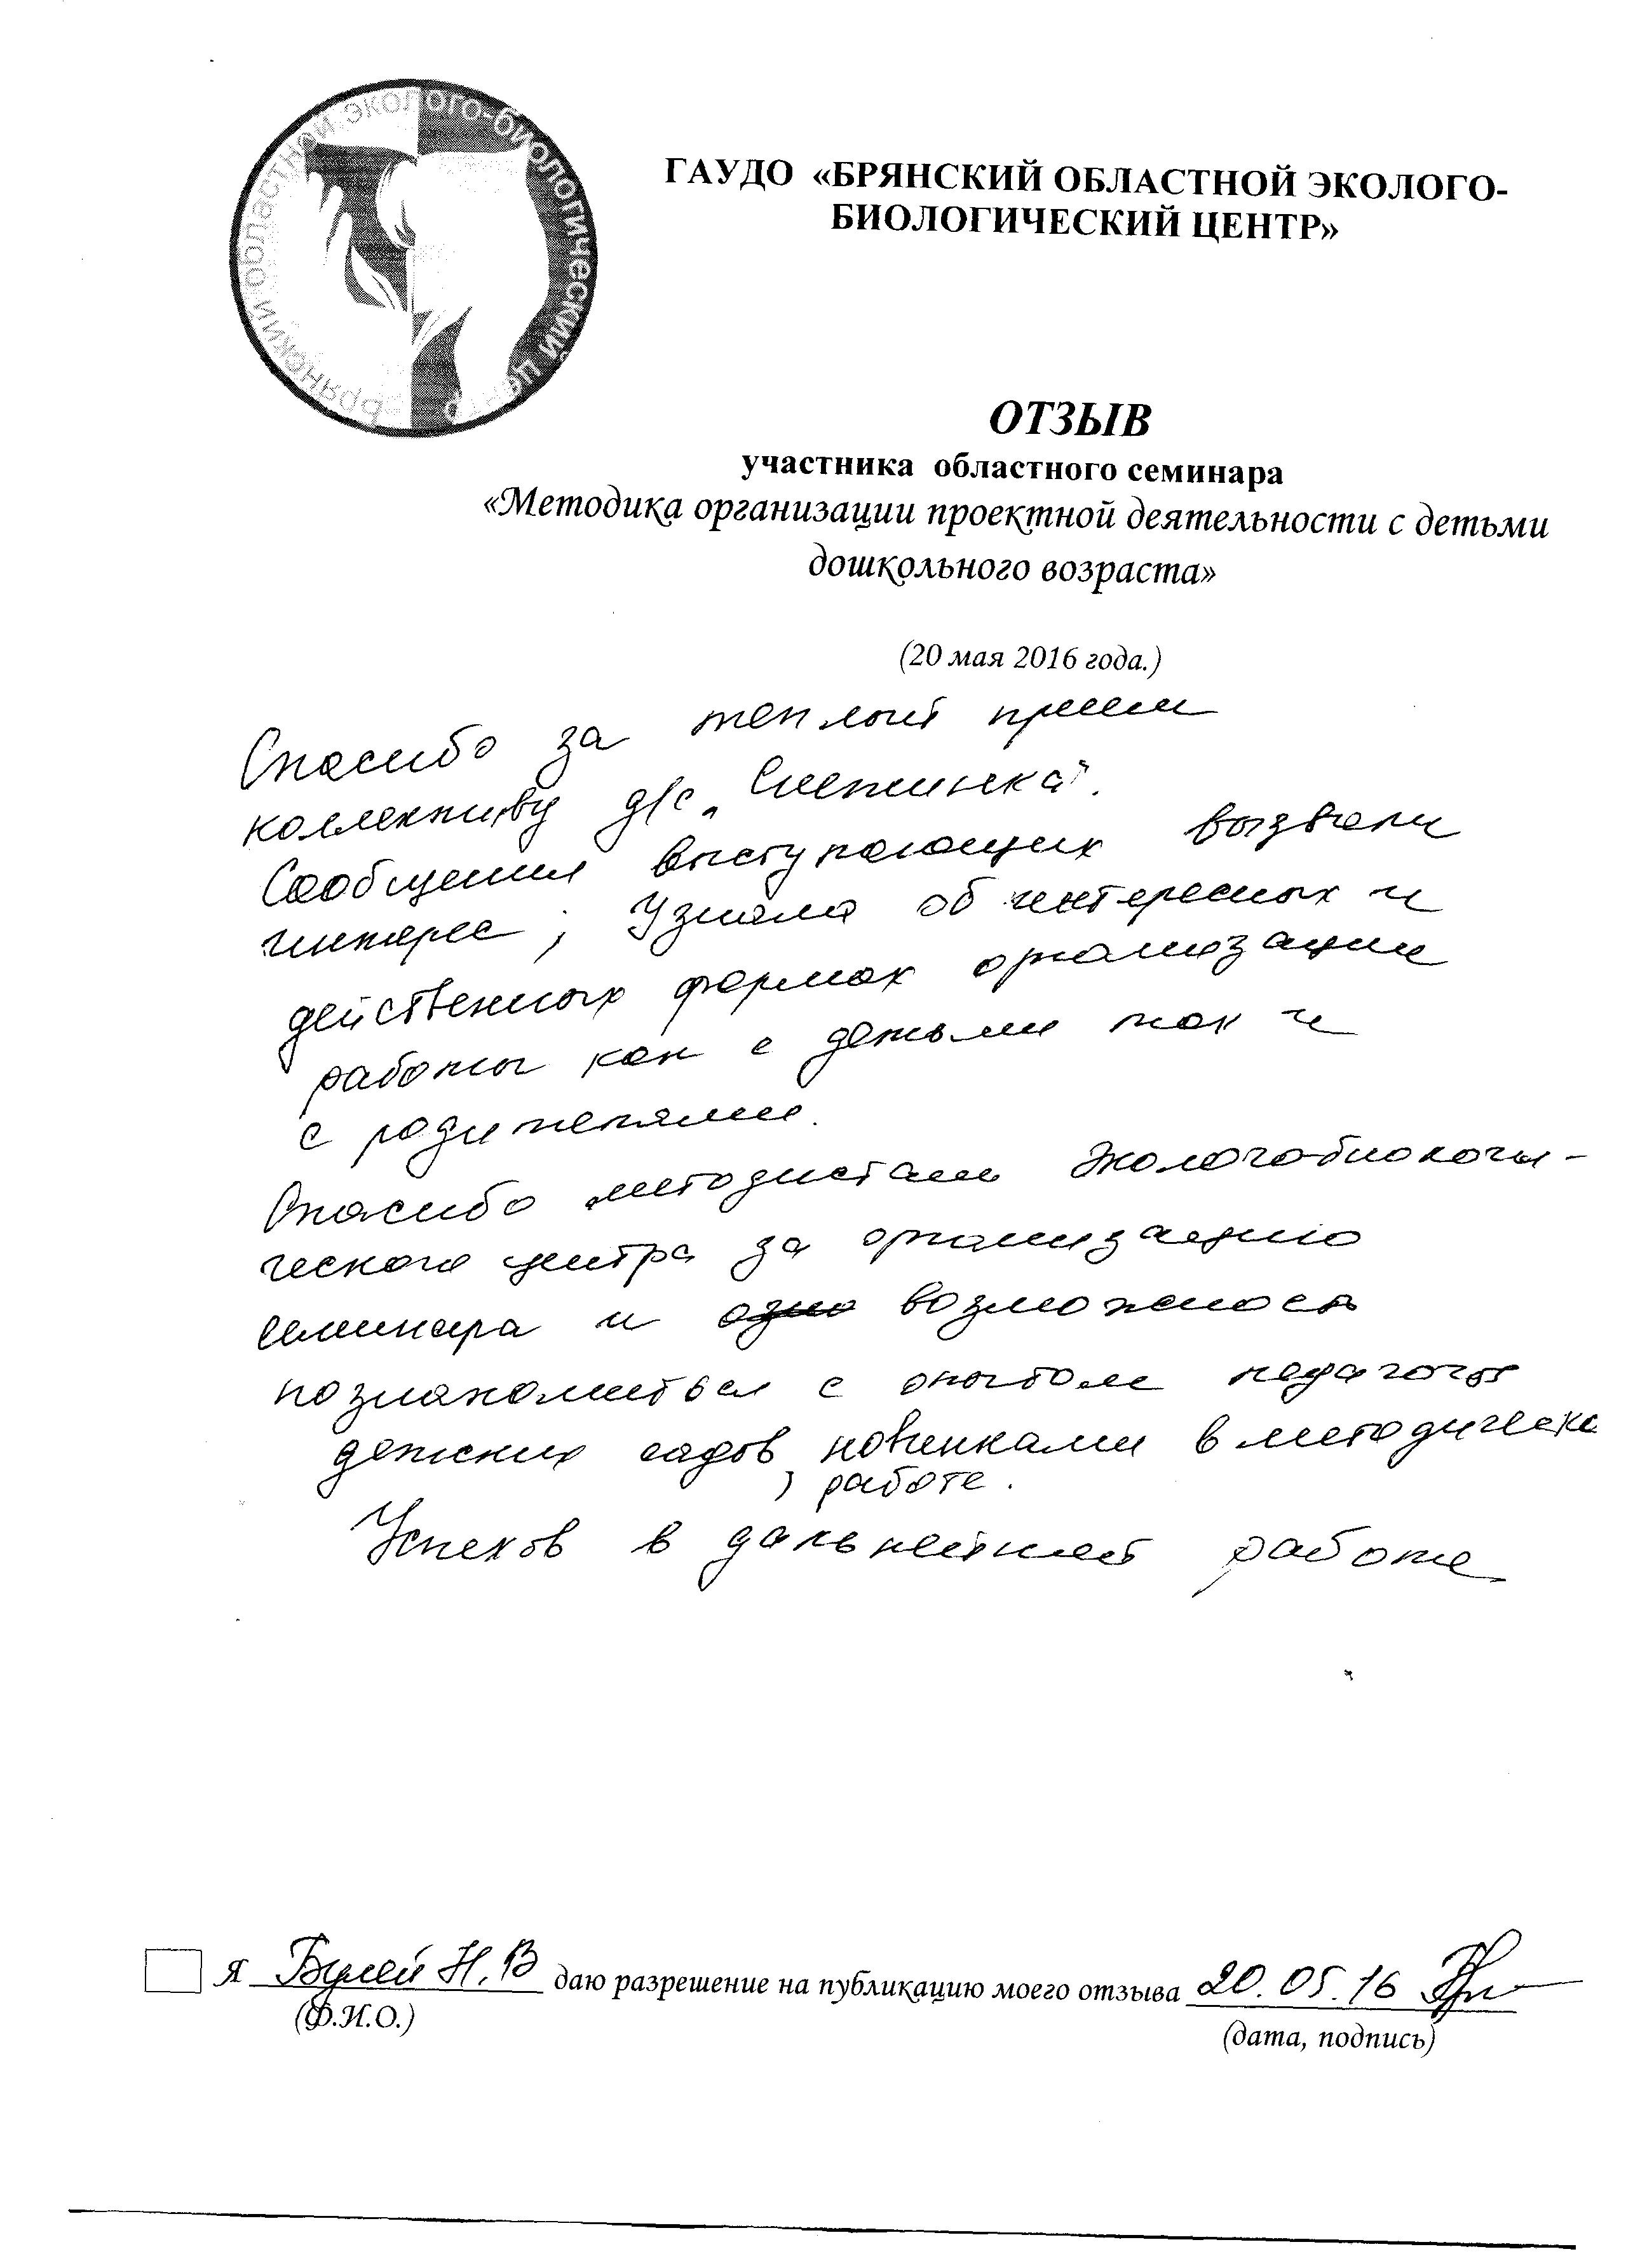 Брянский областной эколого-биологический центр
ГАУДО «БРЯНСКИЙ ОБЛАСТНОЙ ЭКОЛОГО-
БИОЛОГИЧЕСКИЙ ЦЕНТР»
ОТЗЫВ
участника областного семинара
«Методика организации проектной деятельности с детьми
дошкольного возраста»
(20 мая 2016 года.)
Спасибо за теплый прием
коллективу д/с „Снежинка".
Сообщения выступающих вызвали
интерес, Узнала об интересных и
действенных формах организации
работы как с детьми так и
с родителями.
Спасибо методистам Эколого-биологи-
ческого центра за организацию
семинара и возможность
познакомиться с опытом педагогов
детских садов, новинками в методическо
работе.
Успехов в дальнейшей работе
Я Булей Н.В даю разрешение на публикацию моего отзыва 20.05.16
(Ф.И.О.)
(дата, подпись)